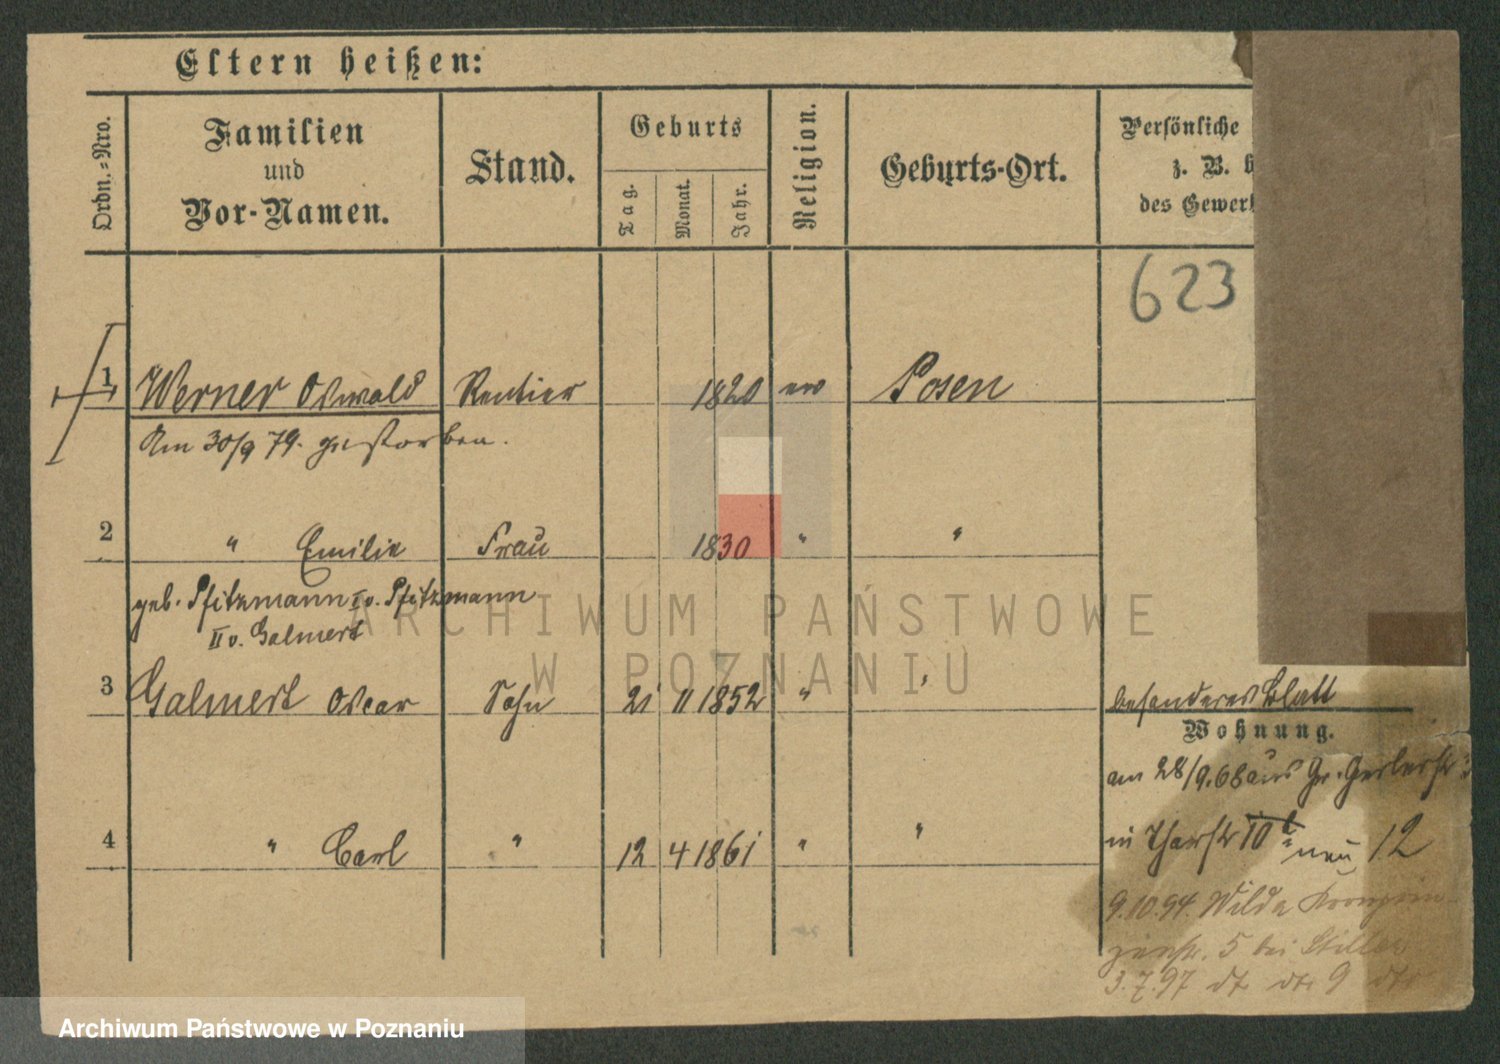 Eltern heißen:
Ordn.-Nro.
Familien
und
Vor-Namen.
Stand.
Geburts
Tag.
Monat.
Jahr.
Religion.
Geburts-Ort.
Persönliche
z. B.
des Gewer
623
1 Werner Oswald Rentier 1820 ev Posen
Am 30/9 79. gestorben.
2 " Emilie Frau 1830 " "
geb. Pfitzmann I v. Pfitzmann
II v. Galmert
3 Galmert Oscar Sohn 21 11 1852 " " besonderes Blatt
Wohnung.
am 28/9.68 aus Gr. Gerberstr 3
4 " Carl " 12 4 1861 " " in Thorstr 10 neu 12
9.10.94. Wilda Kronprin-
zenstr. 5 bei Stiller
3.7.97 dt. dt. 9 dt.
ARCHIWUM PAŃSTWOWE
W POZNANIU
Archiwum Państwowe w Poznaniu